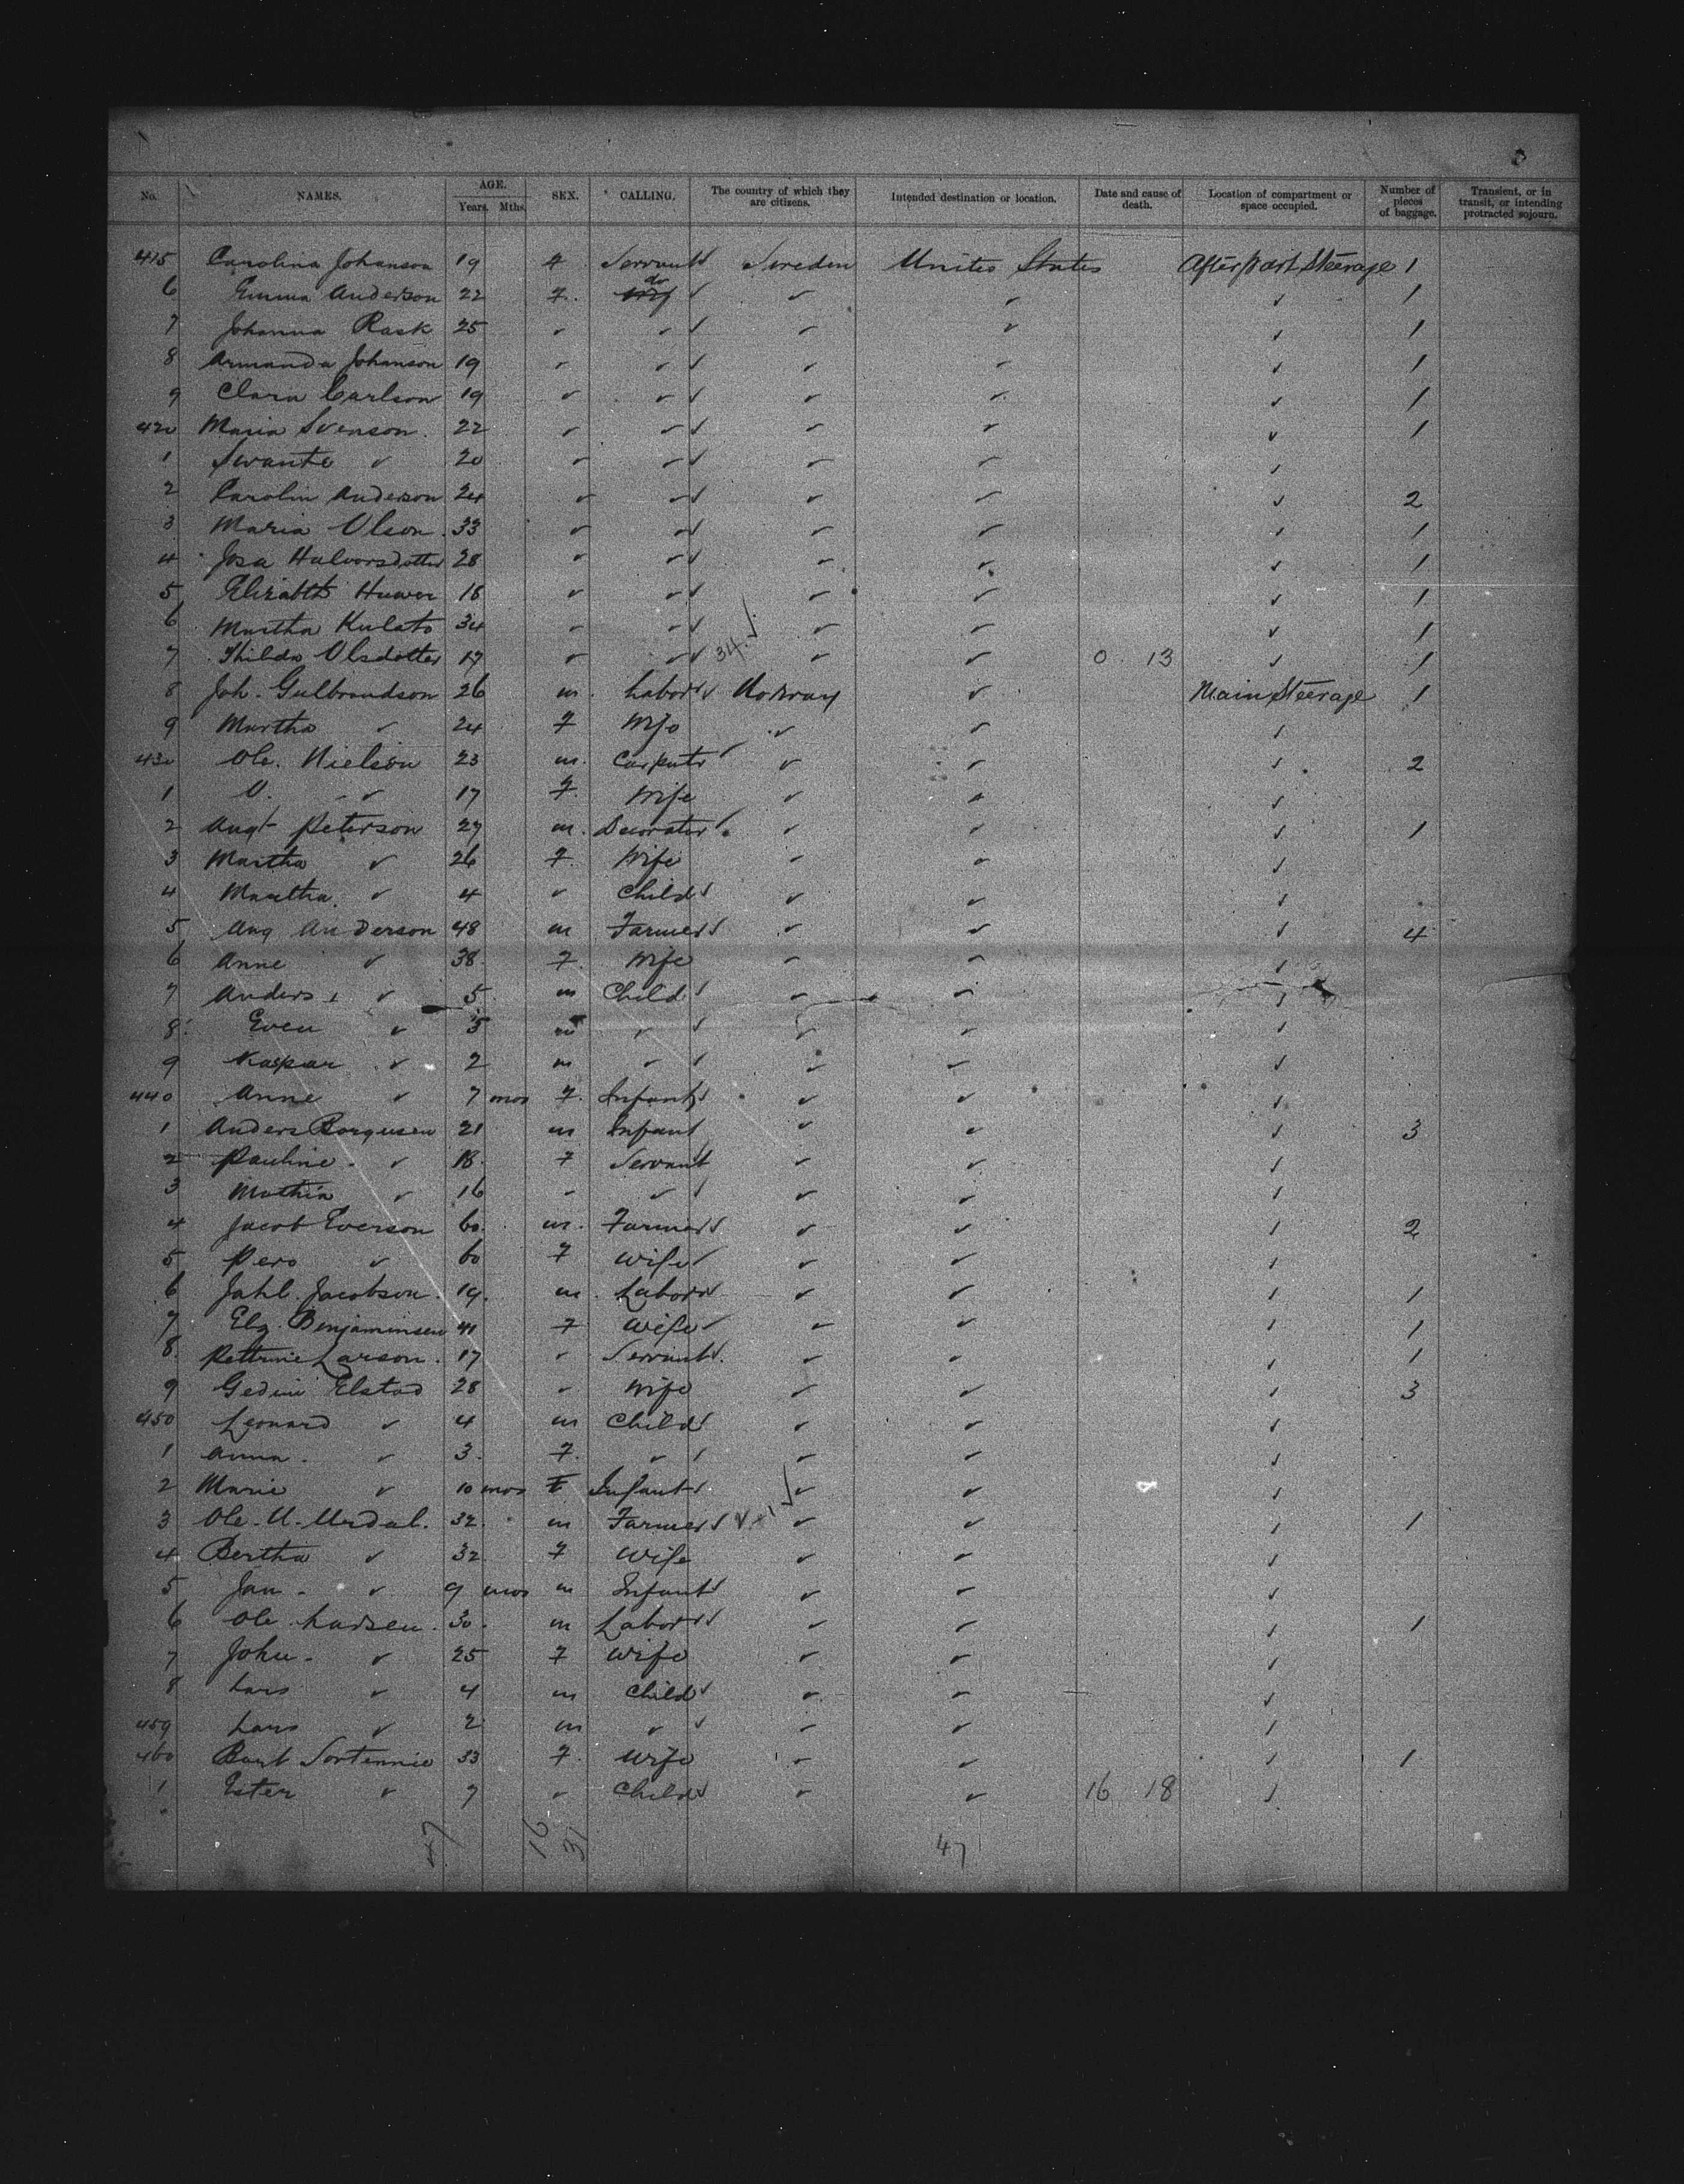 No. NAMES. AGE. Years. Mths. SEX. CALLING. The country of which they are citizens. Intended destination or location. Date and cause of death. Location of compartment or space occupied. Number of pieces of baggage. Transient, or in transit, or intending protracted sojourn.
415 Carolina Johanson 19 f Servant Sweden United States After part Steerage 1
6 Emma Anderson 22 f. do ✓ ✓ ✓ ✓ 1
7 Johanna Rask 25 ✓ ✓ ✓ ✓ ✓ 1
8 Armanda Johanson 19 ✓ ✓ ✓ ✓ ✓ 1
9 Clara Carlson 19 ✓ ✓ ✓ ✓ ✓ 1
420 Maria Svenson. 22 ✓ ✓ ✓ ✓ ✓ 1
1 Swante ✓ 20 ✓ ✓ ✓ ✓ ✓
2 Carolin Anderson 24 ✓ ✓ ✓ ✓ ✓ 2
3 Maria Olson. 33 ✓ ✓ ✓ ✓ ✓ 1
4 Josa Halvorsdotter 28 ✓ ✓ ✓ ✓ ✓ 1
5 Elizabth 18 ✓ ✓ ✓ ✓ ✓ 1
6 Martha Kulato 34 ✓ ✓ ✓ ✓ ✓ 1
7 Olsdotter 17 ✓ ✓ 34 ✓ ✓ ✓ 0 13 ✓ 1
8 Joh. Gulbrandson 26 m. Labor Norway ✓ Main Steerage 1
9 Martha ✓ 24 f Wife ✓ ✓ ✓
430 Ole. Nielson 23 m. Carpntr ✓ ✓ ✓ 2
1 O. ✓ 17 f. Wife ✓ ✓ ✓
2 Augt Peterson 27 m. Decorator ✓ ✓ ✓ 1
3 Martha ✓ 26 f. Wife ✓ ✓ ✓
4 Martha. ✓ 4 ✓ Child ✓ ✓ ✓
5 Aug Anderson 48 m Farmer ✓ ✓ ✓ 4
6 Anne ✓ 38. f. Wife ✓ ✓ ✓
7 Anders ✓ 5 m Child ✓ ✓ ✓
8 Even ✓ 5 m ✓ ✓ ✓ ✓
9 Kaspar ✓ 2 m ✓ ✓ ✓ ✓
440 Anne ✓ 7 mos f. Infant ✓ ✓ ✓
1 Anders Borgusen 21 m Infant ✓ ✓ ✓ 3
2 Pauline ✓ 18. f Servant ✓ ✓ ✓
3 Mathia ✓ 16 ✓ ✓ ✓ ✓ ✓
4 Jacob Everson 60. m. Farmer ✓ ✓ ✓ 2
5 Pero ✓ 60 f Wife ✓ ✓ ✓
6 Jahl. Jacobson. 19. m. Labor ✓ ✓ ✓ 1
7 Elz. Benjaminsen 41 f Wife ✓ ✓ ✓ 1
8. Pettrine Larson. 17 ✓ Servant. ✓ ✓ ✓ 1
9 Gedine Elstad 28 ✓ Wife ✓ ✓ ✓ 3
450 Leonard ✓ 4 m Child ✓ ✓ ✓
1 Anna. ✓ 3. f. ✓ ✓ ✓ ✓
2 Marie ✓ 10 mos f Infant ✓ ✓ ✓
3 Ole. U. Urdal. 32. m Farmer ✓ ✓ ✓ 1
4 Bertha ✓ 32 f Wife ✓ ✓ ✓
5 Jan ✓ 9 mos m Infant ✓ ✓ ✓
6 Ole Larsen. 30. m Labor ✓ ✓ ✓ 1
7 John ✓ 25 f Wife ✓ ✓ ✓
8 Lars ✓ 4 m Child ✓ ✓ ✓
459 Lars ✓ 2 m ✓ ✓ ✓ ✓
460 Sortennie 33 f. Wife ✓ ✓ ✓ 1
1 Ester ✓ 7 ✓ Child ✓ ✓ 16 18 ✓
47 16 31 47